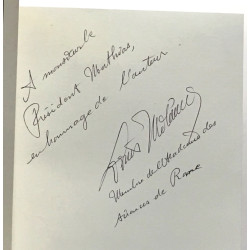 A monsieur le
Président Mathias,
en hommage de l'auteur.
Louis
Membre de l'Académie des
Sciences de Rome